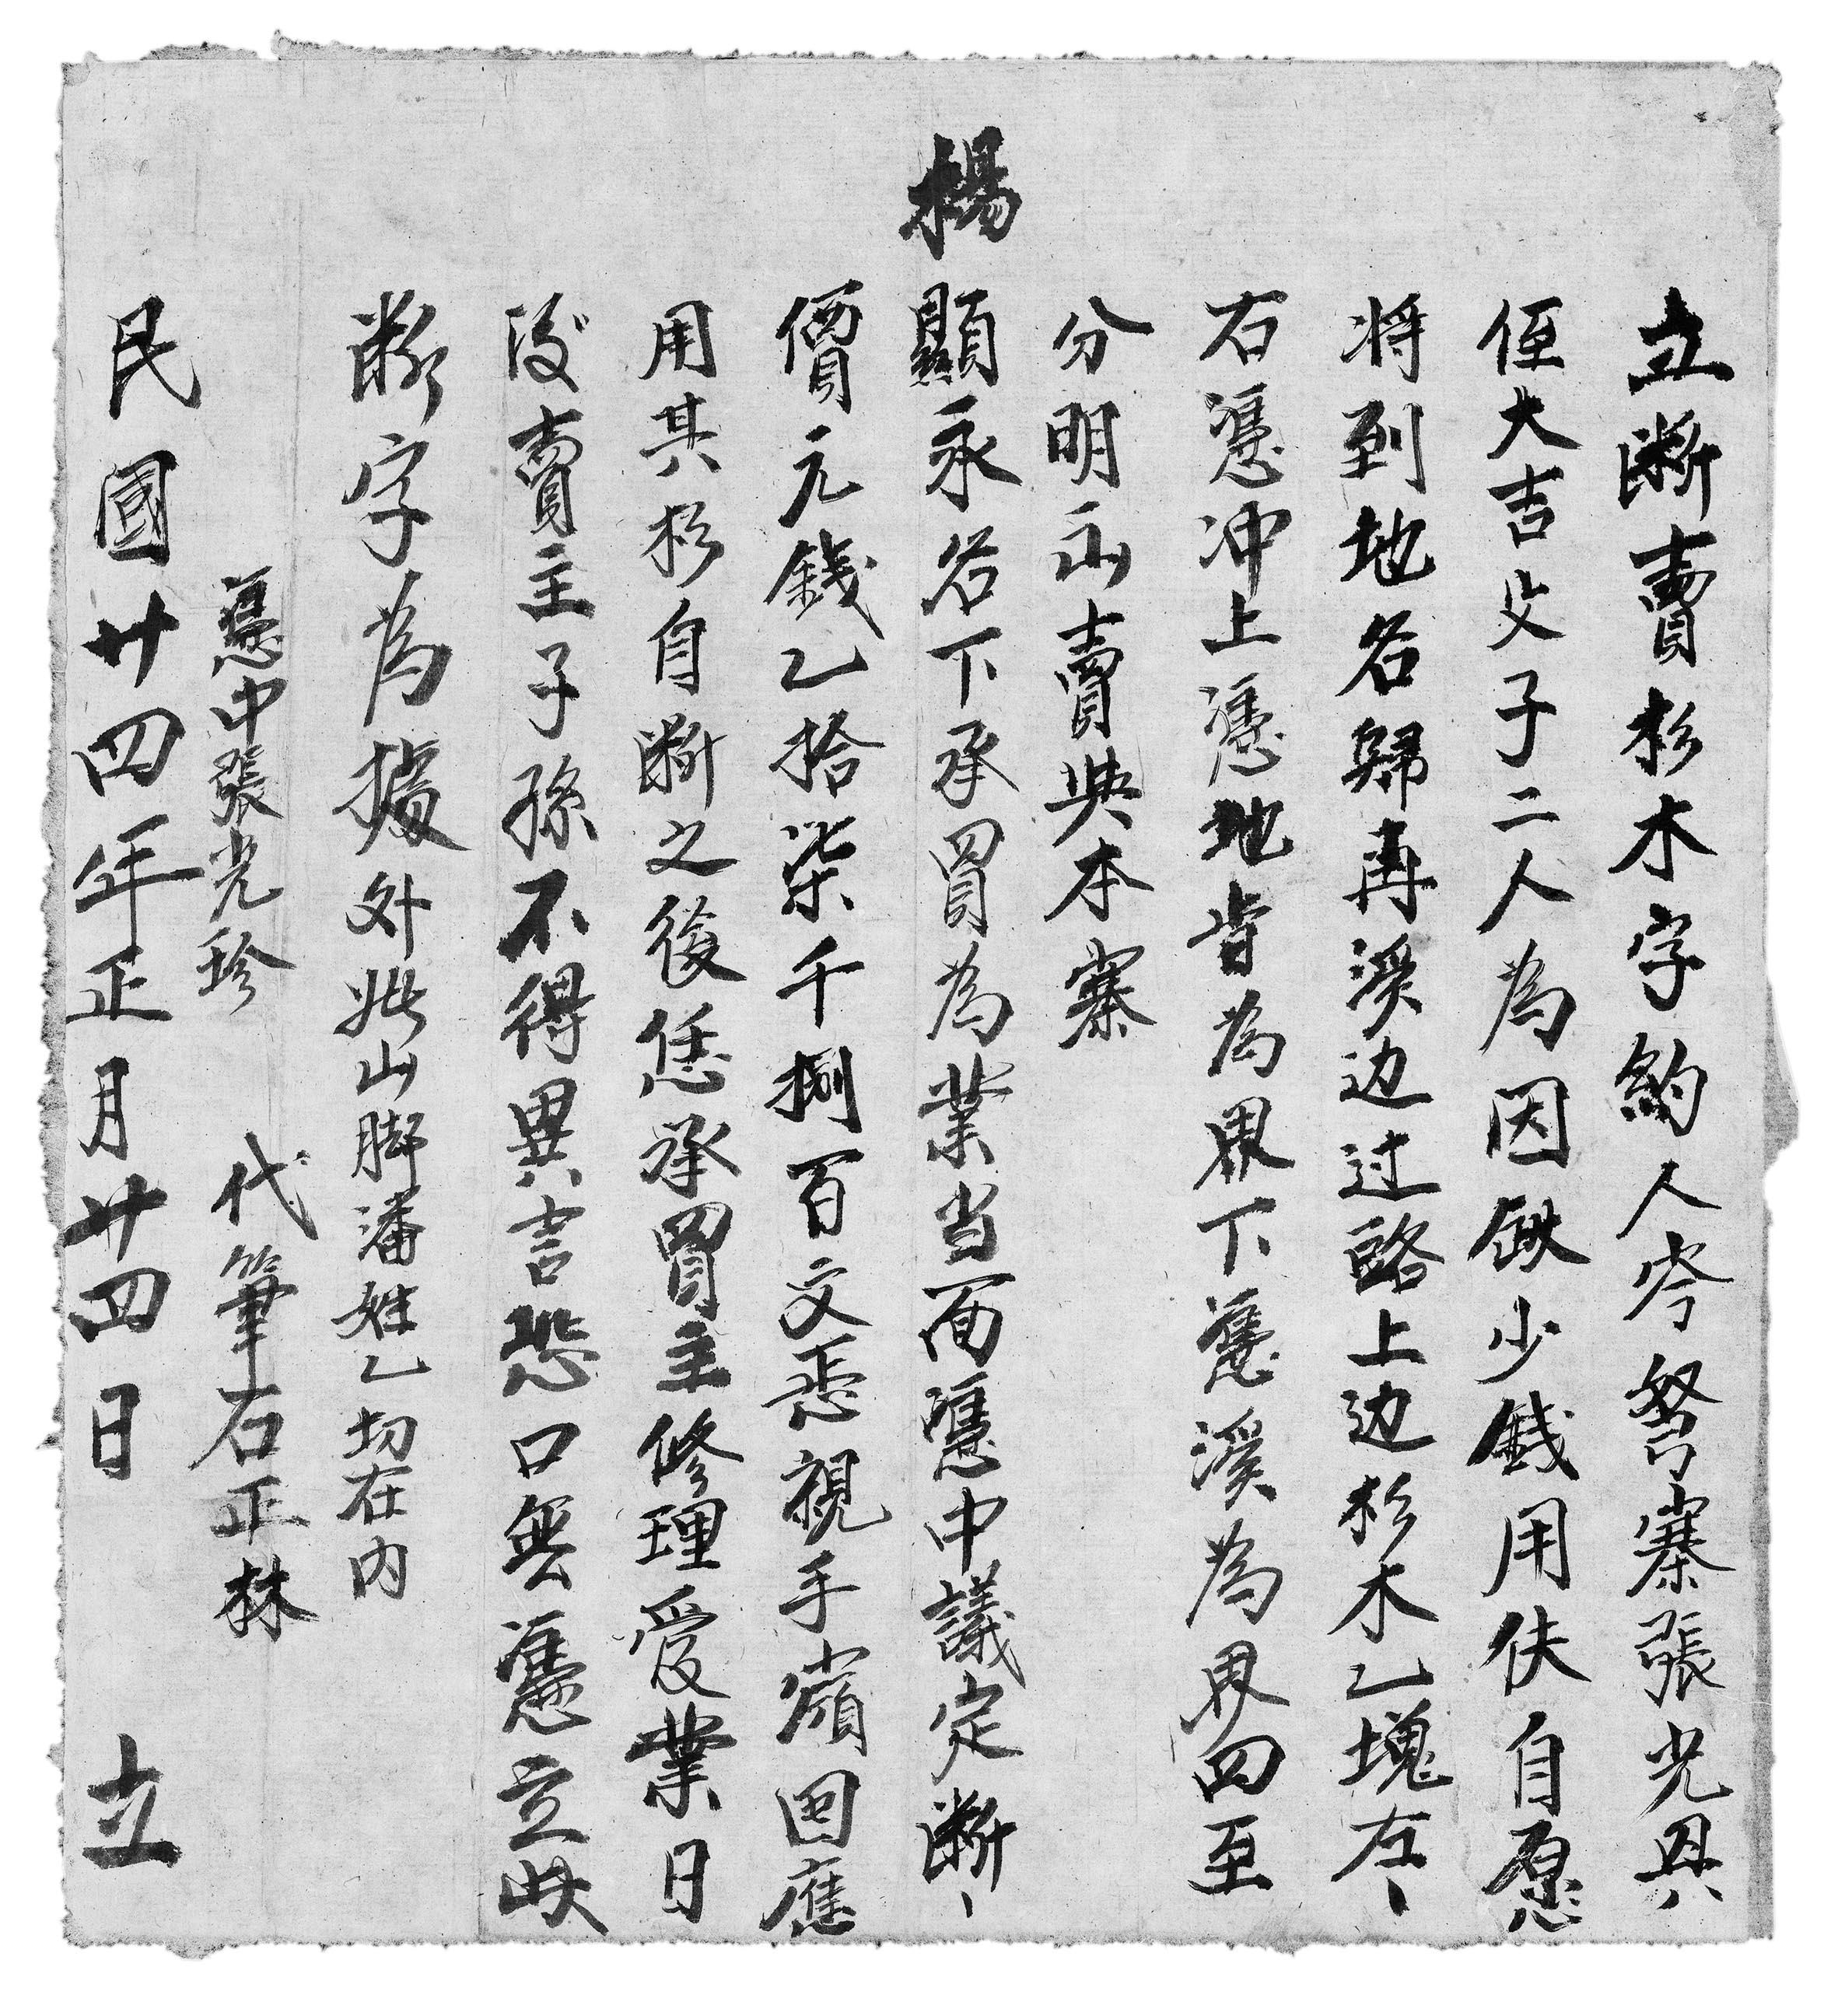 立断賣杉木字約人岑努寨張光具
侄大吉父子二人為因缺少錢用伕自愿
将到地名歸再溪边过路上边杉木乙塊左、
右憑冲上憑地背為界下憑溪為界四至
分明立賣與本寨
楊顯永名下承買為業当面憑中議定断、
價元錢乙拾柒千捌百文悉視手領回應
用其杉自断之後恁承買主修理受業日
後賣主子孫不得異言恐口無憑立此
断字為據外此山脚潘姓乙切在内
憑中張光珍 代筆石正林
民國廿四年正月廿四日 立